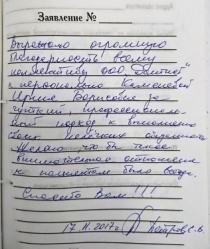 Заявление №
Выражаю огромную
благодарность всему
коллективу ООО
и персонально Каменевой
Ирине Борисовне за
чуткий, профессиональ-
ный подход к выполнению
своих
Желаю что бы такое
внимательное отношение
к пациентам было всегда.
Спасибо Вам!!!
17.XI.2017г. Петров С.В.